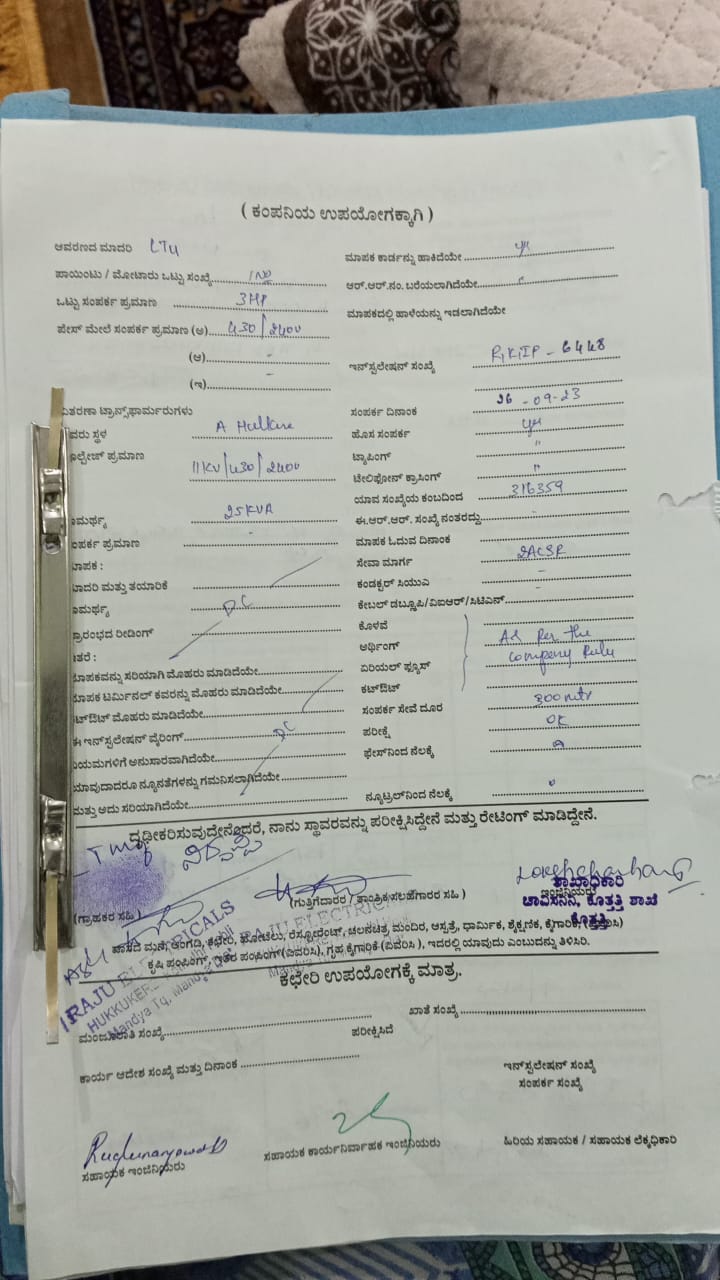 ( ಕಂಪನಿಯ ಉಪಯೋಗಕ್ಕಾಗಿ )
ಆವರಣದ ಮಾದರಿ LT4
ಮಾಪಕ ಕಾರ್ಡನ್ನು ಹಾಕಿದೆಯೇ
ಪಾಯಿಂಟು / ಮೋಟಾರು ಒಟ್ಟು ಸಂಖ್ಯೆ 1No
ಆರ್.ಆರ್.ನಂ. ಬರೆಯಲಾಗಿದೆಯೇ "
ಒಟ್ಟು ಸಂಪರ್ಕ ಪ್ರಮಾಣ 3HP
ಮಾಪಕದಲ್ಲಿ ಹಾಳೆಯನ್ನು ಇಡಲಾಗಿದೆಯೇ
ಪೇಸ್ ಮೇಲೆ ಸಂಪರ್ಕ ಪ್ರಮಾಣ (ಅ) 430/240V
(ಆ) -
ಇನ್‌ಸ್ಟಲೇಷನ್ ಸಂಖ್ಯೆ 6448
(ಇ) -
ವಿತರಣಾ ಟ್ರಾನ್ಸ್‌ಫಾರ್ಮರುಗಳು
ಸಂಪರ್ಕ ದಿನಾಂಕ 26-09-23
ವರು ಸ್ಥಳ
ಹೊಸ ಸಂಪರ್ಕ
ಟ್ಯಾಪಿಂಗ್ "
ಲ್ಟೇಜ್ ಪ್ರಮಾಣ 11KV/430/240V
ಟೇಲಿಫೋನ್ ಕ್ರಾಸಿಂಗ್ "
ಯಾವ ಸಂಖ್ಯೆಯ ಕಂಬದಿಂದ 316359
ಮರ್ಥ್ಯ 25KVA
ಈ.ಆರ್.ಆರ್. ಸಂಖ್ಯೆ ನಂತರದ್ದು -
ಂಪರ್ಕ ಪ್ರಮಾಣ -
ಮಾಪಕ ಓದುವ ದಿನಾಂಕ
ಾಪಕ :
ಸೇವಾ ಮಾರ್ಗ 2ACSR
ಾದರಿ ಮತ್ತು ತಯಾರಿಕೆ
ಕಂಡಕ್ಟರ್ ಸಿಯುಎ -
ಾಮರ್ಥ್ಯ DC
ಕೇಬಲ್ ಡಬ್ಲೂಪಿ/ವಿಐಆರ್/ಸಿಟಿಎಸ್ -
್ರಾರಂಭದ ರೀಡಿಂಗ್
ಕೊಳವೆ
ತರೆ :
ಅರ್ಥಿಂಗ್ As Per the
ಾಪಕವನ್ನು ಸರಿಯಾಗಿ ಮೊಹರು ಮಾಡಿದೆಯೇ
ಏರಿಯಲ್ ಫ್ಯೂಸ್ Company Rules
ಾಪಕ ಟರ್ಮಿನಲ್ ಕವರನ್ನು ಮೊಹರು ಮಾಡಿದೆಯೇ
ಕಟ್‌ಔಟ್
ಟ್‌ಔಟ್ ಮೊಹರು ಮಾಡಿದೆಯೇ
ಸಂಪರ್ಕ ಸೇವೆ ದೂರ 300mtr
ಈ ಇನ್‌ಸ್ಟಲೇಷನ್ ವೈರಿಂಗ್ DC
ಪರೀಕ್ಷೆ OK
ಯಮಗಳಿಗೆ ಅನುಸಾರವಾಗಿದೆಯೇ
ಫೇಸ್‌ನಿಂದ ನೆಲಕ್ಕೆ
ಯಾವುದಾದರೂ ನ್ಯೂನತೆಗಳನ್ನು ಗಮನಿಸಲಾಗಿದೆಯೇ
ಮತ್ತು ಅದು ಸರಿಯಾಗಿದೆಯೇ
ನ್ಯೂಟ್ರಲ್‌ನಿಂದ ನೆಲಕ್ಕೆ
ದೃಢೀಕರಿಸುವುದೇನೆಂದರೆ, ನಾನು ಸ್ಥಾವರವನ್ನು ಪರೀಕ್ಷಿಸಿದ್ದೇನೆ ಮತ್ತು ರೇಟಿಂಗ್ ಮಾಡಿದ್ದೇನೆ.
ಶಾಖಾಧಿಕಾರಿ
ಇಂಜಿನಿಯರು
(ಗ್ರಾಹಕರ ಸಹಿ )
(ಗುತ್ತಿಗೆದಾರರ / ತಾಂತ್ರಿಕ ಸಲಹೆಗಾರರ ಸಹಿ )
ಚಾವಿಸನಿನಿ, ಕೊತ್ತತ್ತಿ ಶಾಖೆ
ಕೊತ್ತತ್ತಿ
ವಾಸದ ಮನೆ, ಅಂಗಡಿ, ಕಛೇರಿ, ಹೋಟೆಲು, ರೆಸ್ಟೋರೆಂಟ್, ಚಲನಚಿತ್ರ ಮಂದಿರ, ಆಸ್ಪತ್ರೆ, ಧಾರ್ಮಿಕ, ಶೈಕ್ಷಣಿಕ, ಕೈಗಾರಿಕೆ, (ವಿವರಿಸಿ)
ಕೃಷಿ ಪಂಪಿಂಗ್, ಇತರ ಪಂಪಿಂಗ್ (ವಿವರಿಸಿ), ಗೃಹ ಕೈಗಾರಿಕೆ (ವಿವರಿಸಿ ), ಇದರಲ್ಲಿ ಯಾವುದು ಎಂಬುದನ್ನು ತಿಳಿಸಿರಿ.
RAJU ELECTRICALS
HUKKUKERE
Mandya Tq. Mandya
RAJU ELECTRIC
ಕಛೇರಿ ಉಪಯೋಗಕ್ಕೆ ಮಾತ್ರ.
ಮಂಜೂರಾತಿ ಸಂಖ್ಯೆ
ಖಾತೆ ಸಂಖ್ಯೆ
ಪರೀಕ್ಷಿಸಿದೆ
ಕಾರ್ಯ ಆದೇಶ ಸಂಖ್ಯೆ ಮತ್ತು ದಿನಾಂಕ
ಇನ್‌ಸ್ಟಲೇಷನ್ ಸಂಖ್ಯೆ
ಸಂಪರ್ಕ ಸಂಖ್ಯೆ
ಸಹಾಯಕ ಇಂಜಿನಿಯರು
ಸಹಾಯಕ ಕಾರ್ಯನಿರ್ವಾಹಕ ಇಂಜಿನಿಯರು
ಹಿರಿಯ ಸಹಾಯಕ / ಸಹಾಯಕ ಲೆಕ್ಕಧಿಕಾರಿ